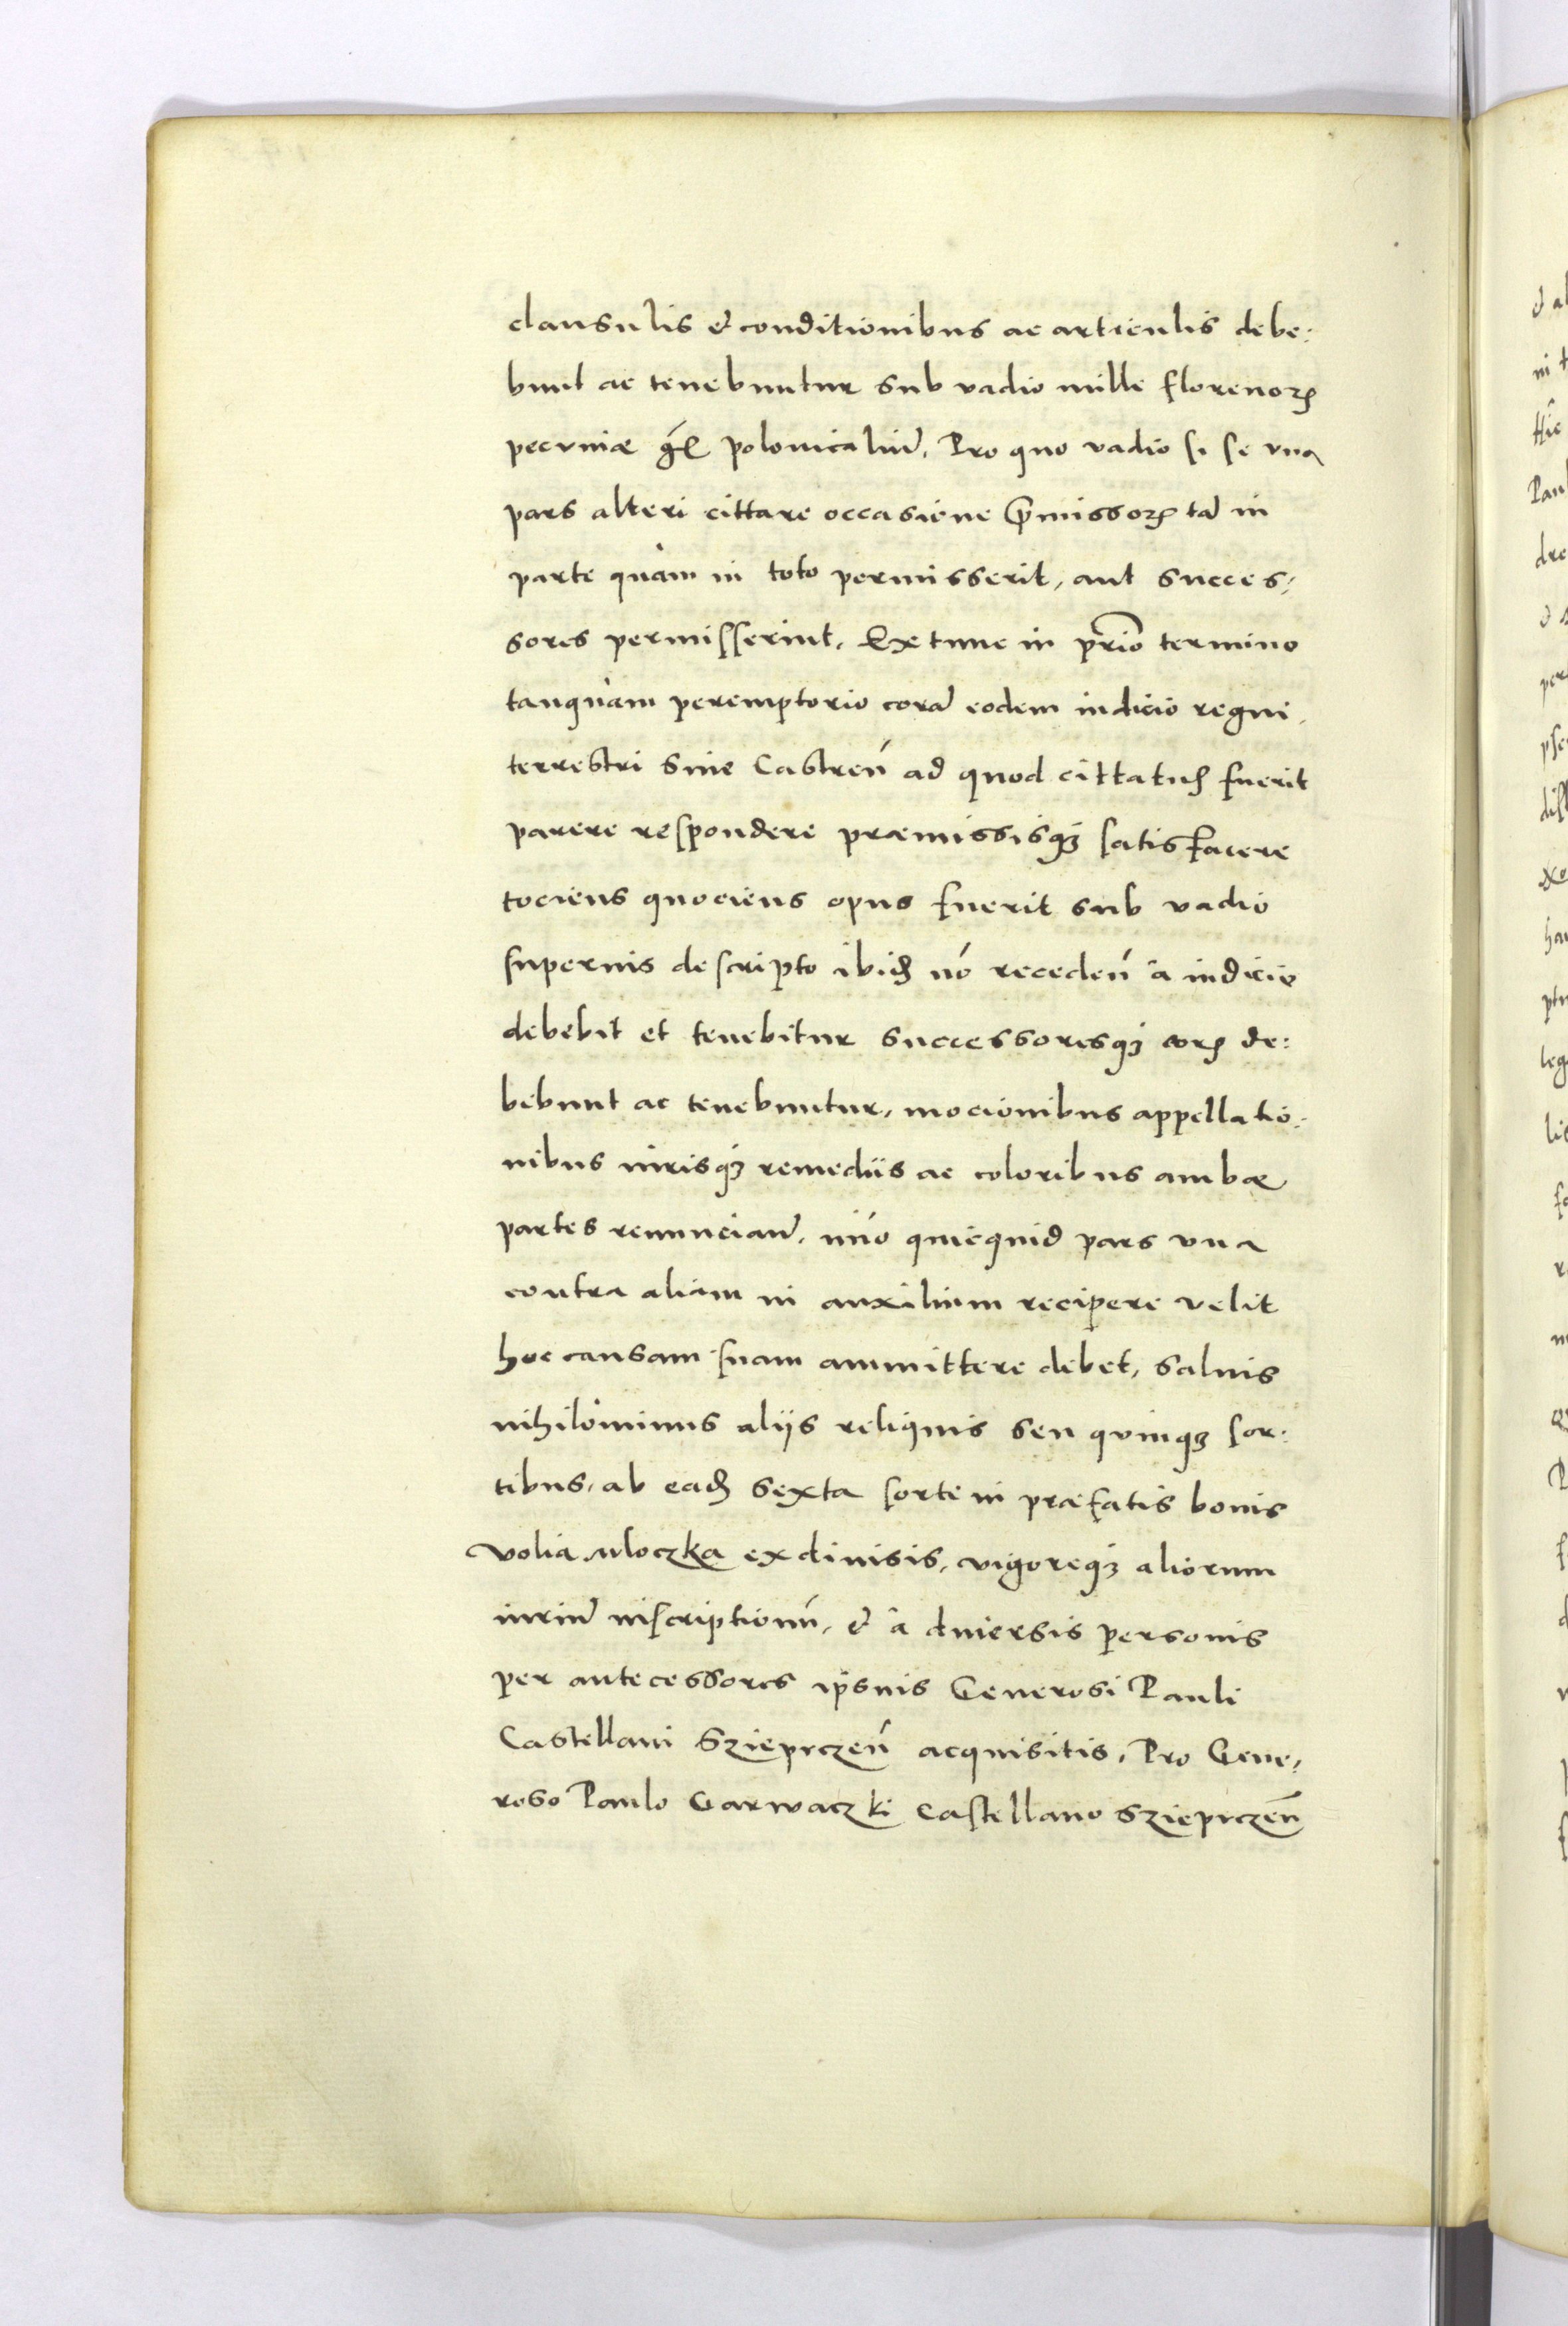 clausulis et conditionibus ac articulis debe:
bunt ac tenebuntur sub vadio mille florenoꝝ
pecuniæ polonicaliũ. Pro quo vadio si se una
pars alteri cittare occasione p̃missoꝝ tã in
parte quàm in toto permisserit, aut succes,
sores permisserint. Extunc in p̃rio termino
tanquàm peremptorio corã eodem iudicio regni,
terrestri siue Castreñ ad quod cittatus fuerit
parere respondere præmissisqꝫ satisfacere
tociens quociens opus fuerit sub vadio
superuis descripto ibidẽ nõ recedeñ â iudicio
debebit et tenebitur successoresqꝫ eorꝫ de:
bebunt ac tenebuntur, mocionibus appellatio:
nibus iurisqꝫ remediis ac coloribus ambæ
partes renunciauẽ. imo quicquid pars vna
contra aliam in auxilium recipere velit
hoc causam suam ammittere debet, saluis
nihilominus aliis reliquis seu quinqꝫ sor:
tibus, ab eadẽ sexta sorte in præfatis bonis
volia wloczka exdiuisis, vigoreqꝫ aliorum
iuriũ inscriptionũ, et â diuersis personis
per antecessores ipsuis Generosi Pauli
Castellani Szieprczeñ acquisitis, Pro Gene,
roso Paulo Garwaczki Castellano Szieprczeñ